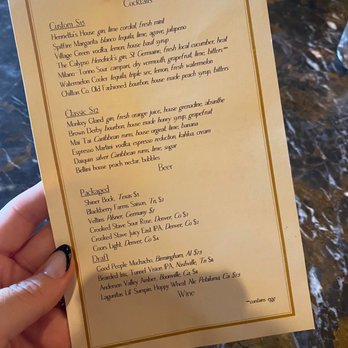 Cocktails
Custom $15
Henrietta's House gin, lime cordial, fresh mint
Spitfire Margarita blanco tequila, lime, agave, jalapeno
Village Green vodka, lemon, house basil syrup
The Calypso Hendrick's gin, St Germaine, fresh local cucumber, heat
Milano-Torino Sour campari, dry vermouth, grapefruit, lime, bitters**
Watermelon Cooler tequila, triple sec, lemon, fresh watermelon
Chilton Co. Old Fashioned bourbon, house made peach syrup, bitters
Classic $12
Monkey Gland gin, fresh orange juice, house grenadine, absinthe
Brown Derby bourbon, house made honey syrup, grapefruit
Mai Tai Caribbean rums, house orgeat, lime, banana
Espresso Martini vodka, espresso reduction, kahlua, cream
Daiquiri silver Caribbean rums, lime, sugar
Bellini house peach nectar, bubbles
Beer
Packaged
Shiner Bock, Texas $5
Blackberry Farms Saison, Tn,
Veltins Pilsner, Germany
Crooked Stave Sour Rose, Denver, Co
Crooked Stave Juicy East IPA, Denver, Co
Coors Light, Denver, Co $4
Draft
Good People Muchacho, Birmingham, Al
Bearded Iris, Tunnel Vision IPA, Nashville, Tn
Anderson Valley Amber, Boonville, Ca,
Lagunitas Lil' Sumpin, Hoppy Wheat Ale Petaluma, Ca
Wine
**contains egg